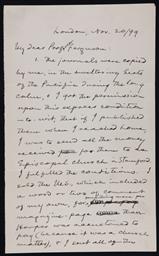 London, Nov. 20/99
My dear Prof. Ferguson:
1. The journals were copied
by me, in the sweltering seats
of the Pacific during the long
calm, & I got the permission
upon this express condition
—to wit, that if I published
them when I reached home,
I was to send all the money
received to the
Episcopal church in Stamford.
I fulfilled the conditions. I
sold the MS, which included
a word or two of comment
of my own, for
magazine-page than
Harper was accustomed to
pay (because it was a church
matter), & sent all of the